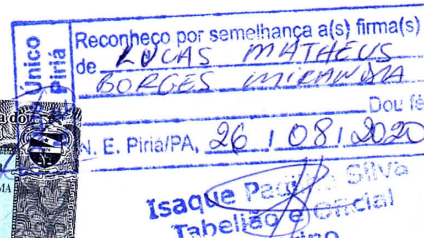 Reconheço por semelhança a(s) firma(s)
de LUCAS MATHEUS
BORGES MIRANDA
Dou fé
N. E. Piriá/PA, 26 / 08 / 2020
Isaque Silva
Tabelião e Oficial
Único
Piriá